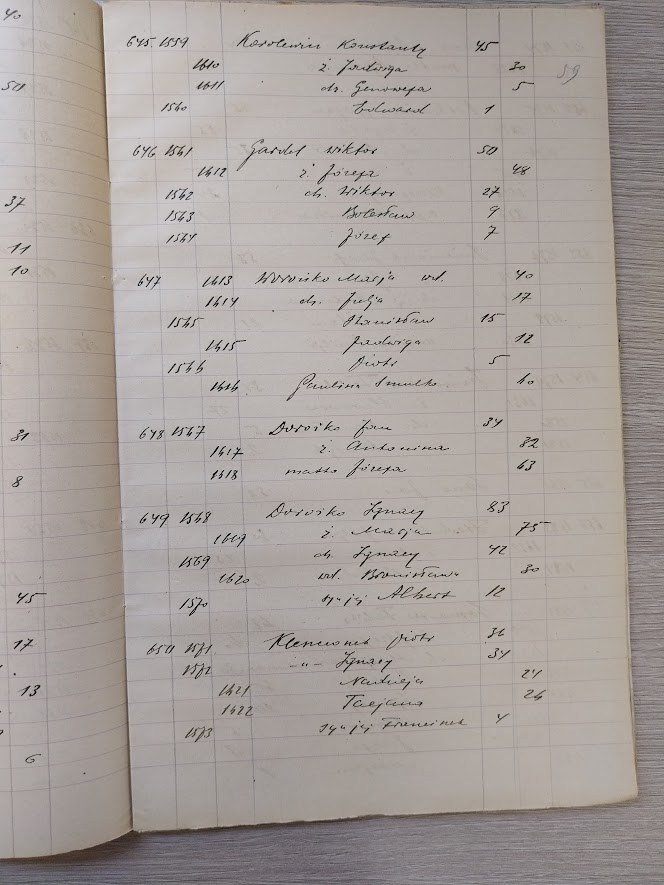 40
50
37
11
10
31
8
45
17
13
6
59
645 1559 Karolewicz Konstanty 45
1610 ż. Jadwiga 30
1611 ch. Genowefa 5
1560 Edward 1
646 1561 Gardel Wiktor 50
1612 ż. Józefa 48
1562 ch. Wiktor 27
1563 Bolesław 9
1564 Józef 7
647 1613 Dorośko Marja wd. 40
1614 ch. Julja 17
1565 Stanisław 15
1615 Jadwiga 12
1566 Piotr 5
1616 Paulina Smulko 60
648 1567 Dorośko Jan 34
1617 ż. Antonina 32
1618 matka Józefa 63
649 1568 Dorośko Ignacy 83
1619 ż. Marja 75
1569 ch. Ignacy 42
1620 wd. Bronisława 30
1570 syn jej Albert 12
650 1571 Klemionek Piotr 36
1572 -"- Ignacy 34
Nadzieja 24
1621 
1622 Tacjana 26
1573 syn jej Franciszek 4